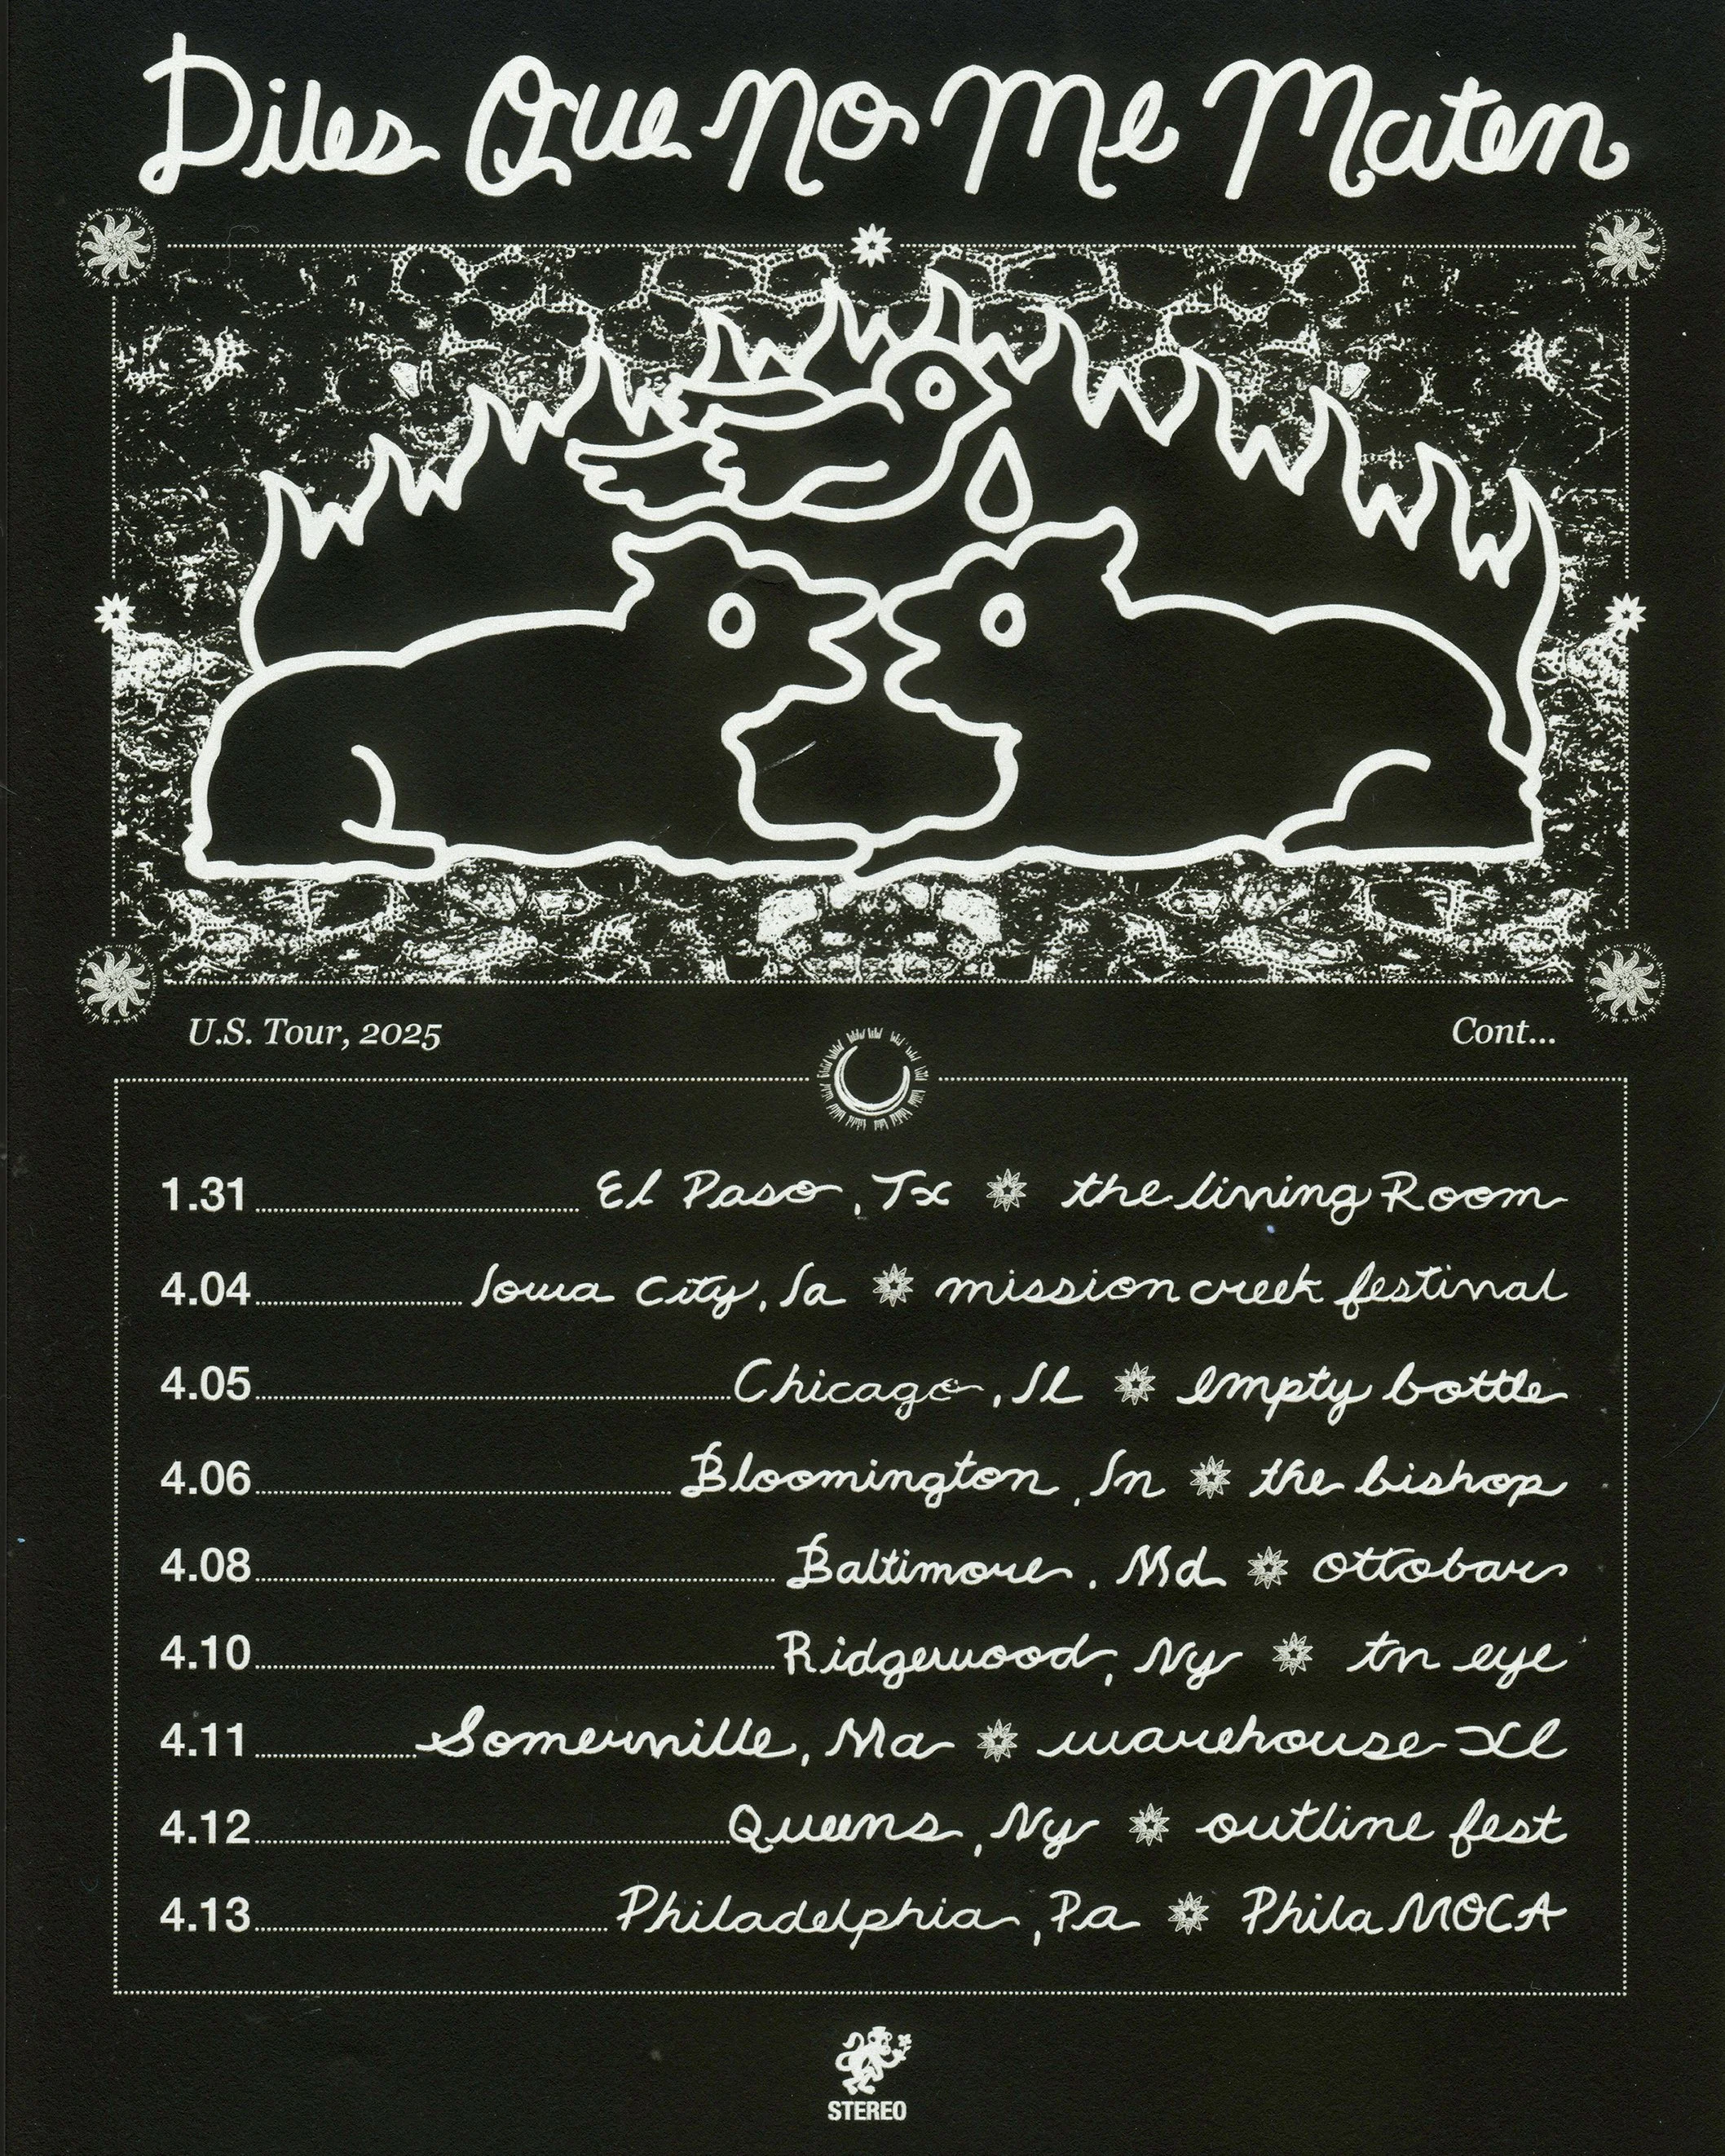 Diles Que no Me Maten
U.S. Tour, 2025
Cont...
1.31 El Paso, Tx the living Room
4.04 Iowa City, Ia mission creek festival
4.05 Chicago, Il empty bottle
4.06 Bloomington, In the bishop
4.08 Baltimore, Md ottobar
4.10 Ridgewood, Ny tv eye
4.11 Somerville, Ma warehouse Xl
4.12 Queens, Ny outline fest
4.13 Philadelphia, Pa Phila MOCA
STEREO